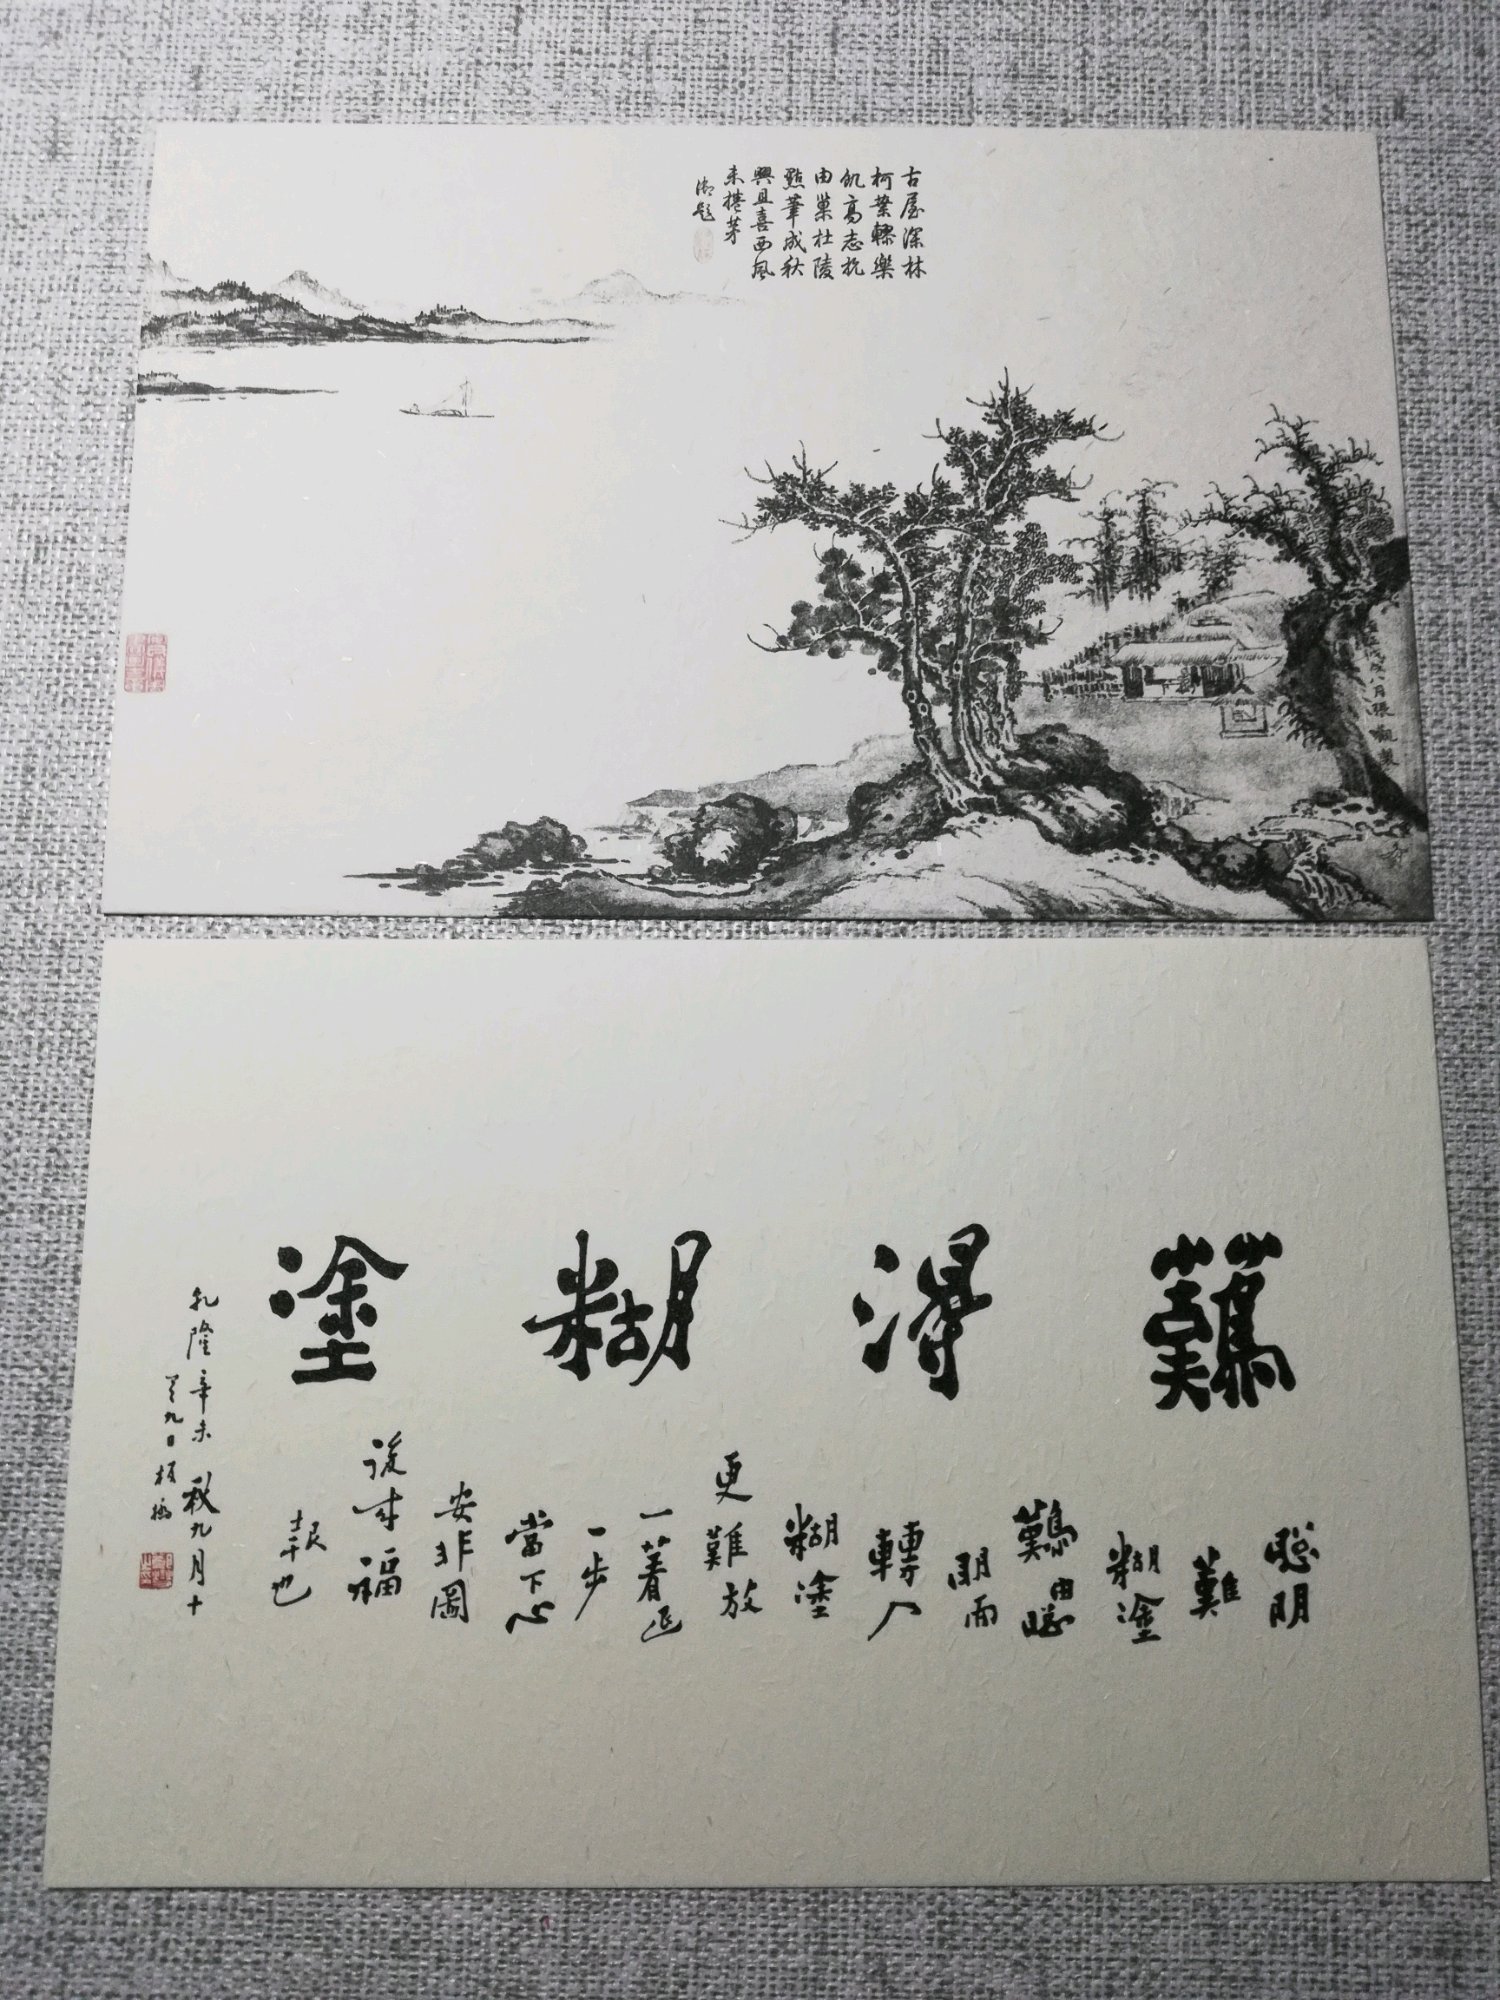 古屋深林
柯葉轇樂
飢高志抗
由巢杜陵
點筆成秋
興且喜西風
未捲茅
御題
戊戌八月張
難得糊塗
聰明
難
糊塗
難由聰
明而
轉入
糊塗
更難放
一著退
一步
當下心
安非圖
後來福
報也
乾隆辛未秋九月十
有九日板橋